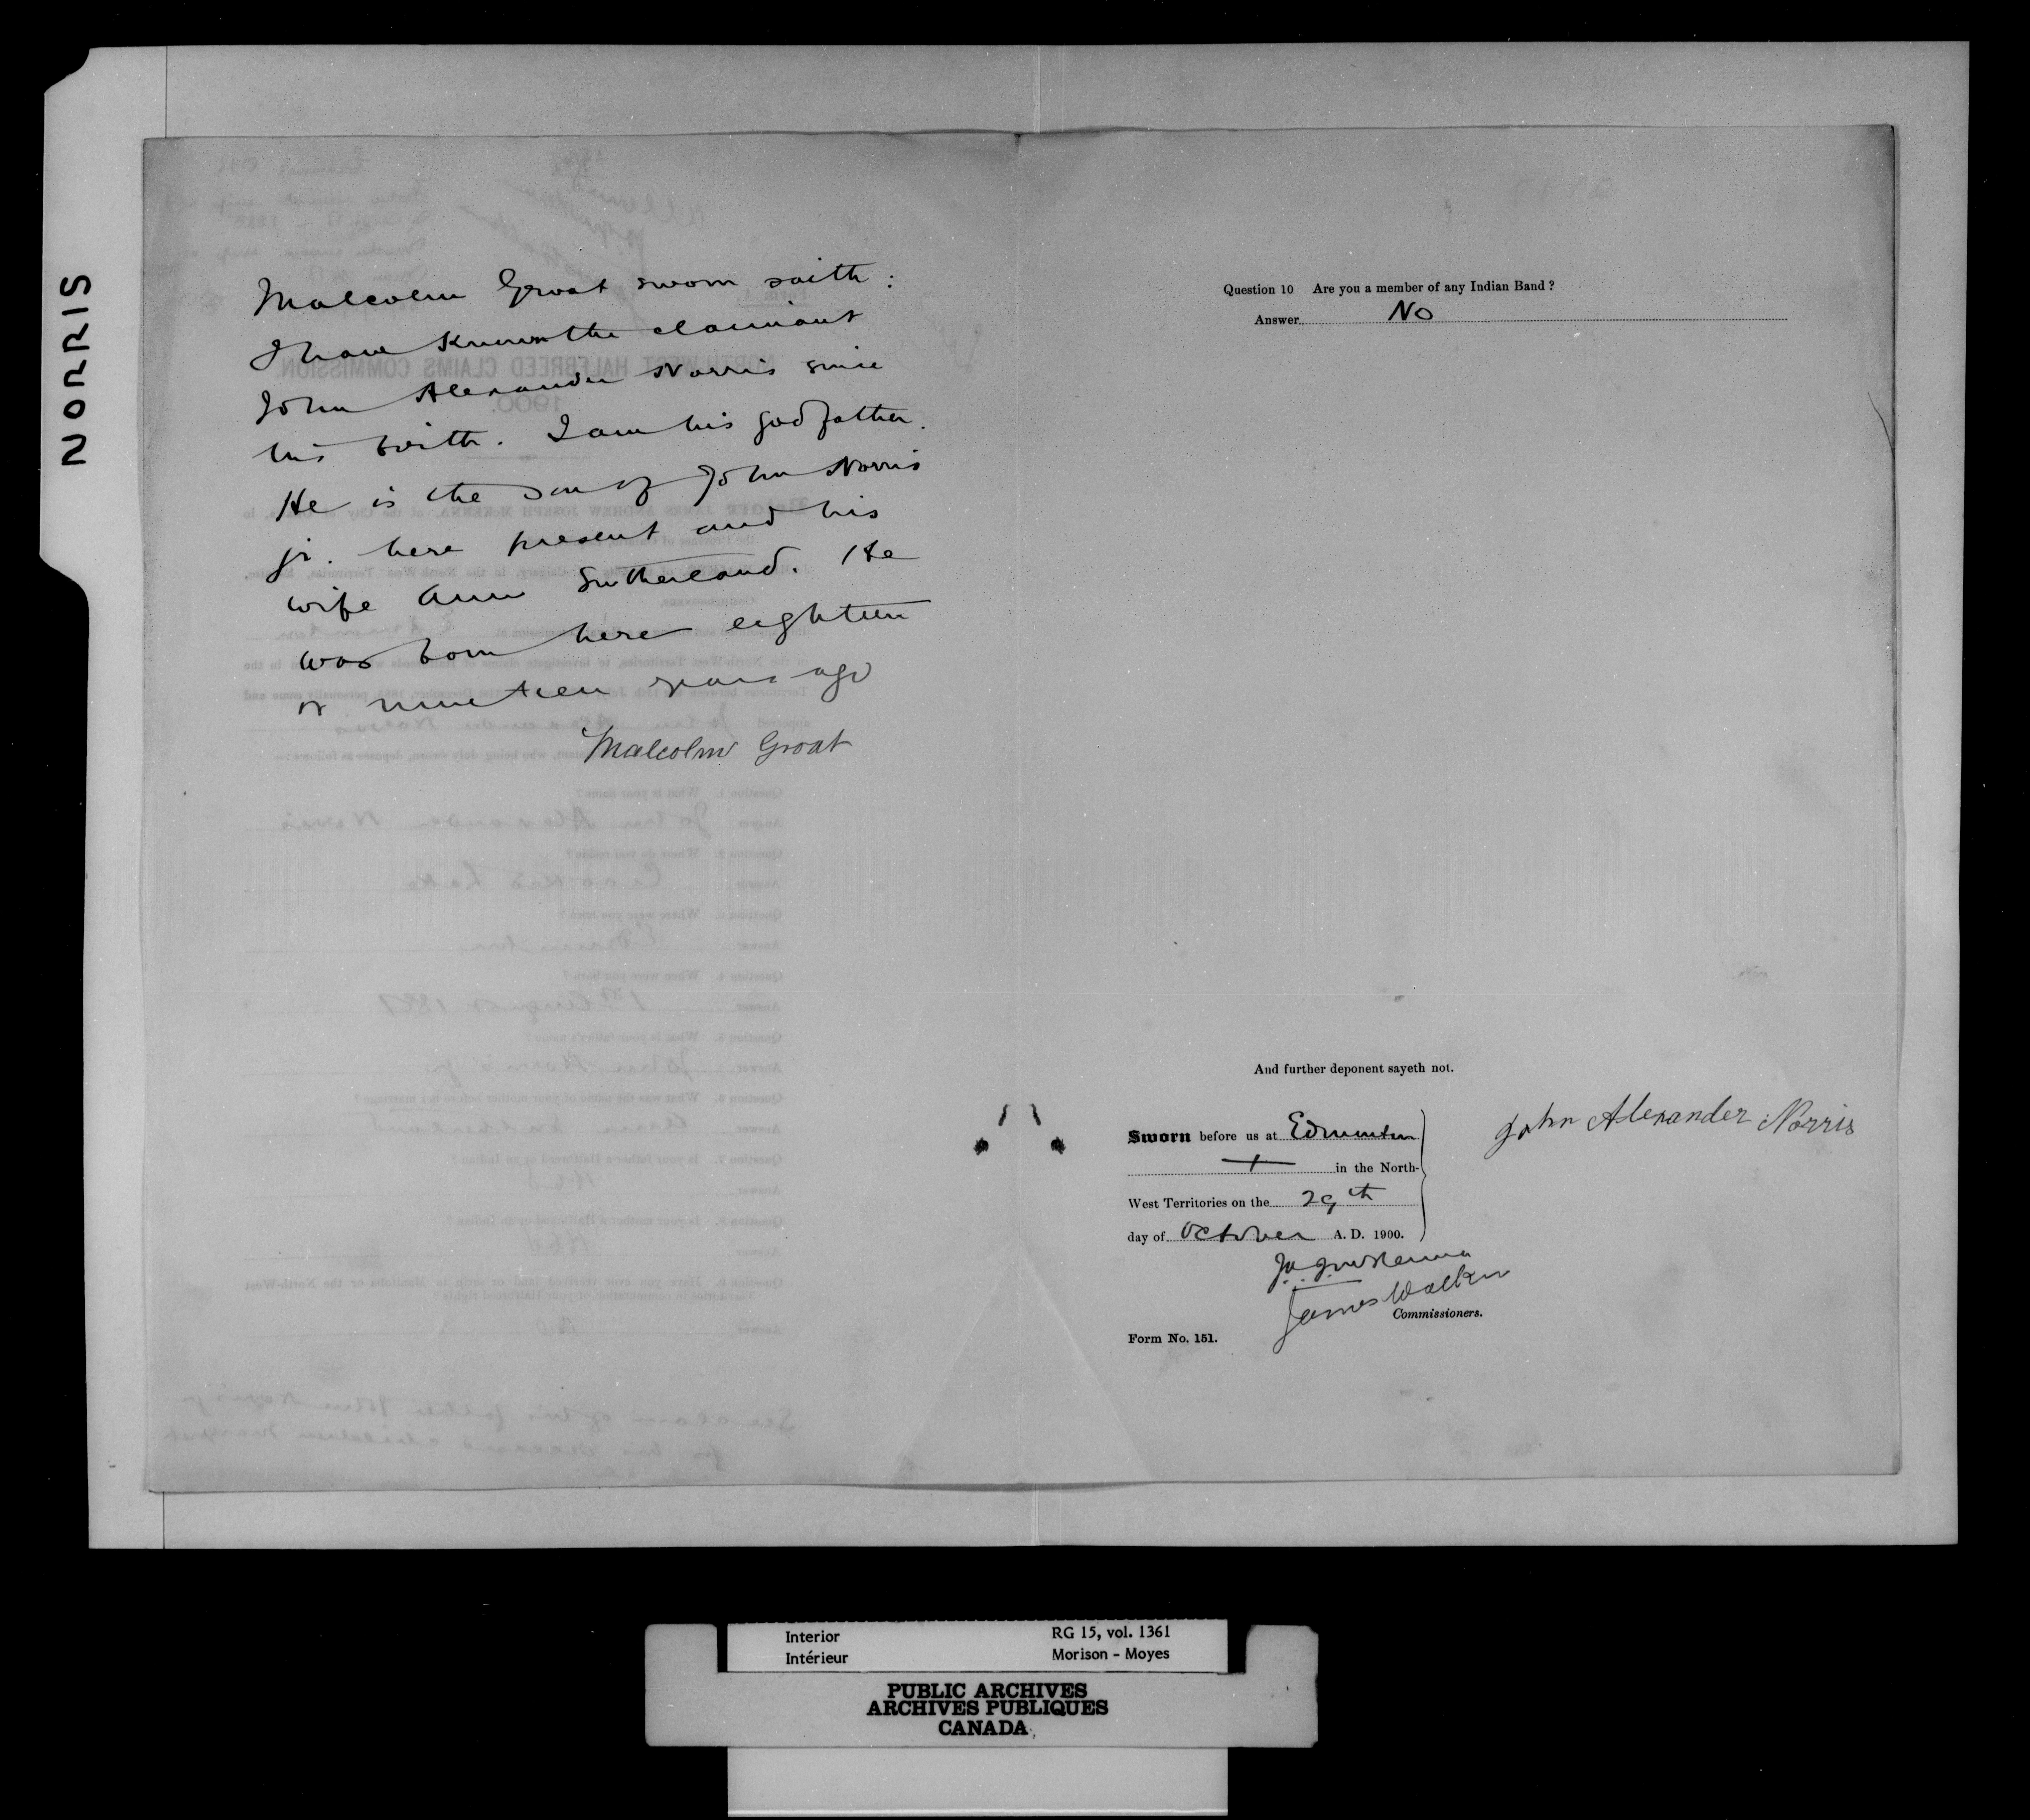 NORRIS
Malcolm Groat sworn saith :
I have known the claimant
John Alexander Norris since
his birth. I am his godfather.
He is the son of John Norris
jr. here present and his
wife Ann Sutherland. He
was born here eighteen
or nineteen years ago
Malcolm Groat
Question 10 Are you a member of any Indian Band ?
Answer No
And further deponent sayeth not.
Sworn before us at Edmonton
in the North-
West Territories on the 29th
day of October A. D. 1900.
John Alexander Norris
J. A. J. McKenna
James Walker
Commissioners.
Form No. 151.
Interior
Intérieur
RG 15, vol. 1361
Morison - Moyes
PUBLIC ARCHIVES
ARCHIVES PUBLIQUES
CANADA